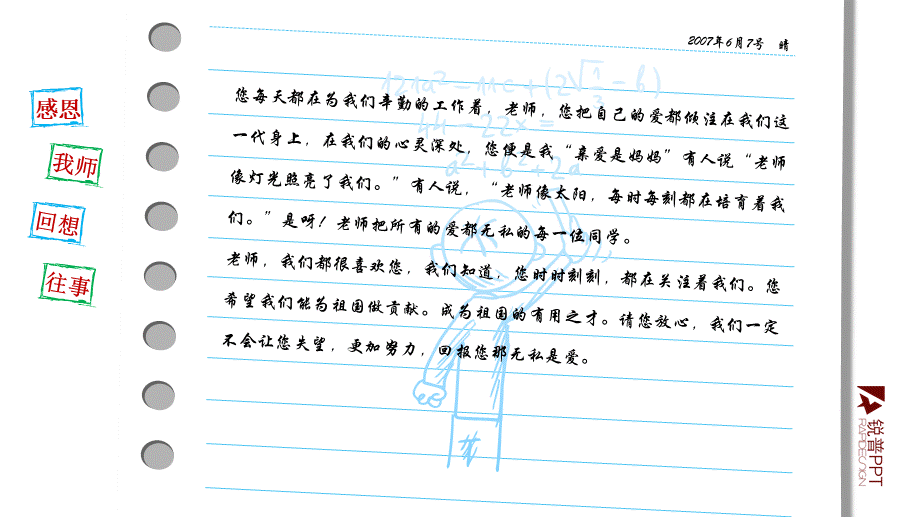 2007年6月7号 晴
121a²-11c+(2√1/3-b)
44-22x=
a²+b²+2a
您每天都在为我们辛勤的工作着，老师，您把自己的爱都倾注在我们这
一代身上，在我们的心灵深处，您便是我“亲爱是妈妈”有人说“老师
像灯光照亮了我们。”有人说，“老师像太阳，每时每刻都在培育着我
们。”是呀！老师把所有的爱都无私的每一位同学。
老师，我们都很喜欢您，我们知道，您时时刻刻，都在关注着我们。您
希望我们能为祖国做贡献。成为祖国的有用之才。请您放心，我们一定
不会让您失望，更加努力，回报您那无私是爱。
感恩
我师
回想
往事
锐普PPT
RAPIDESIGN